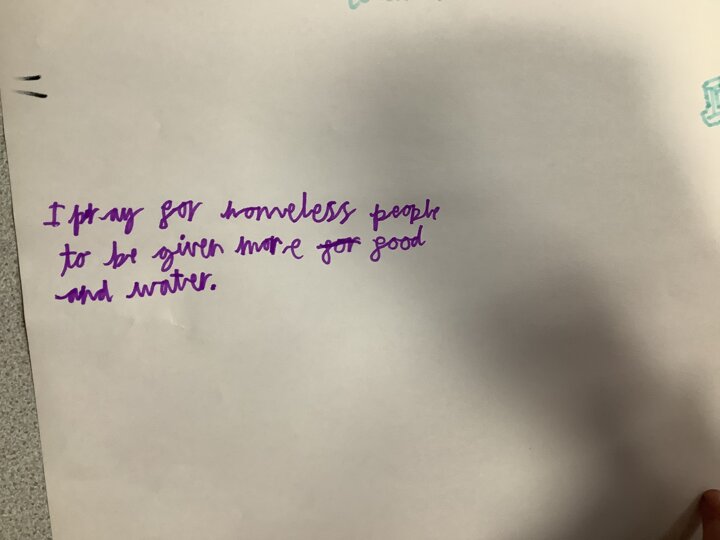 I pray for homeless people
to be given more for food
and water.